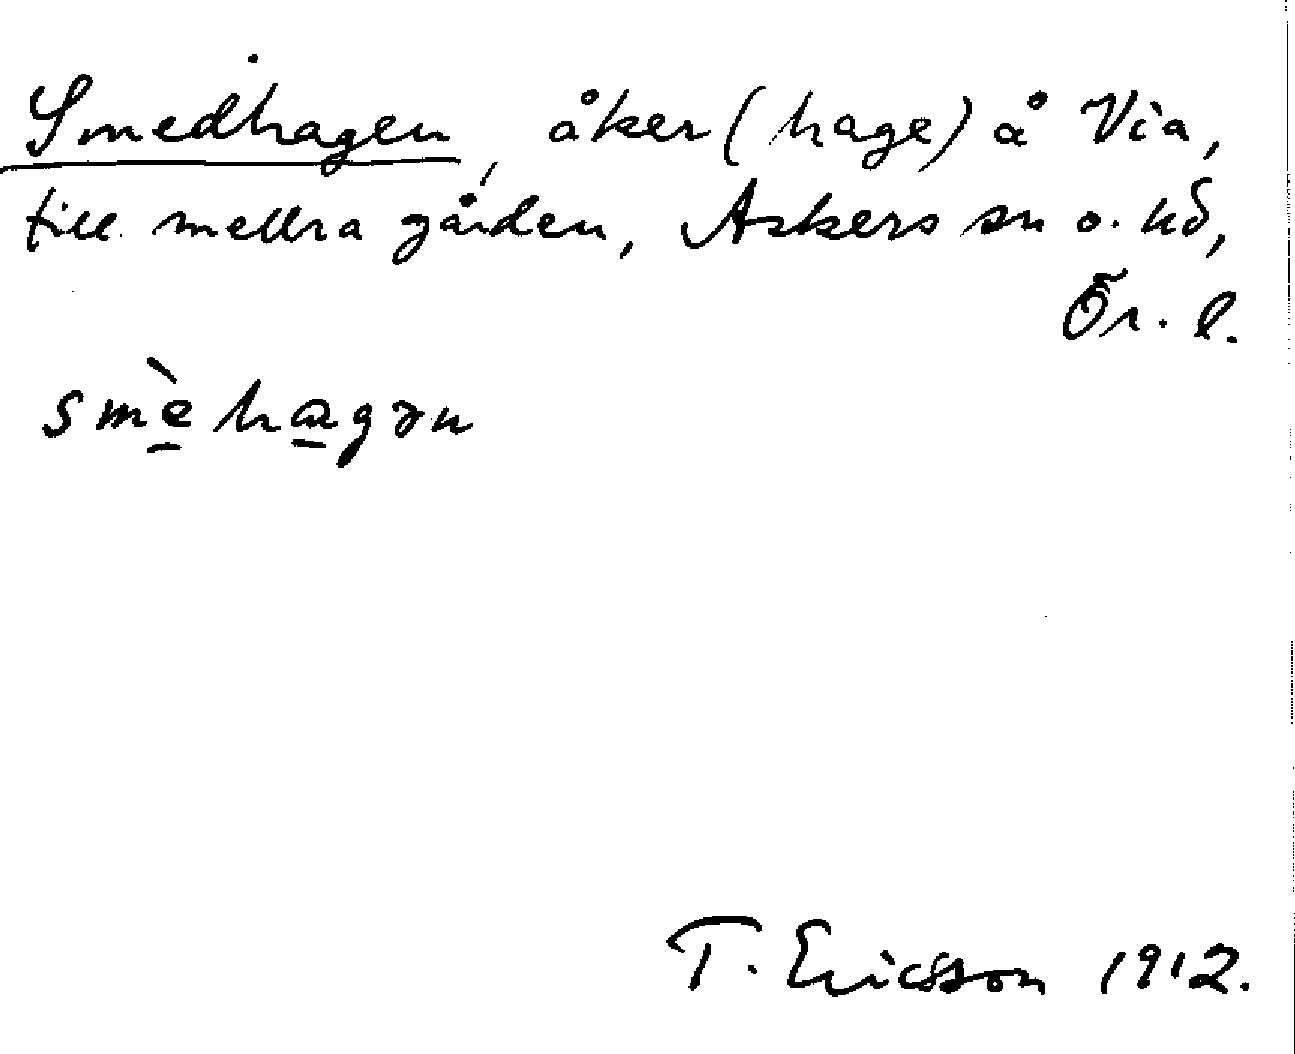 Smedhagen, åker (hage) å Via,
till mellra gården, Askers sn o. hd,
Ör. l.
smè̱ha̱gən
T. Ericsson 1912.